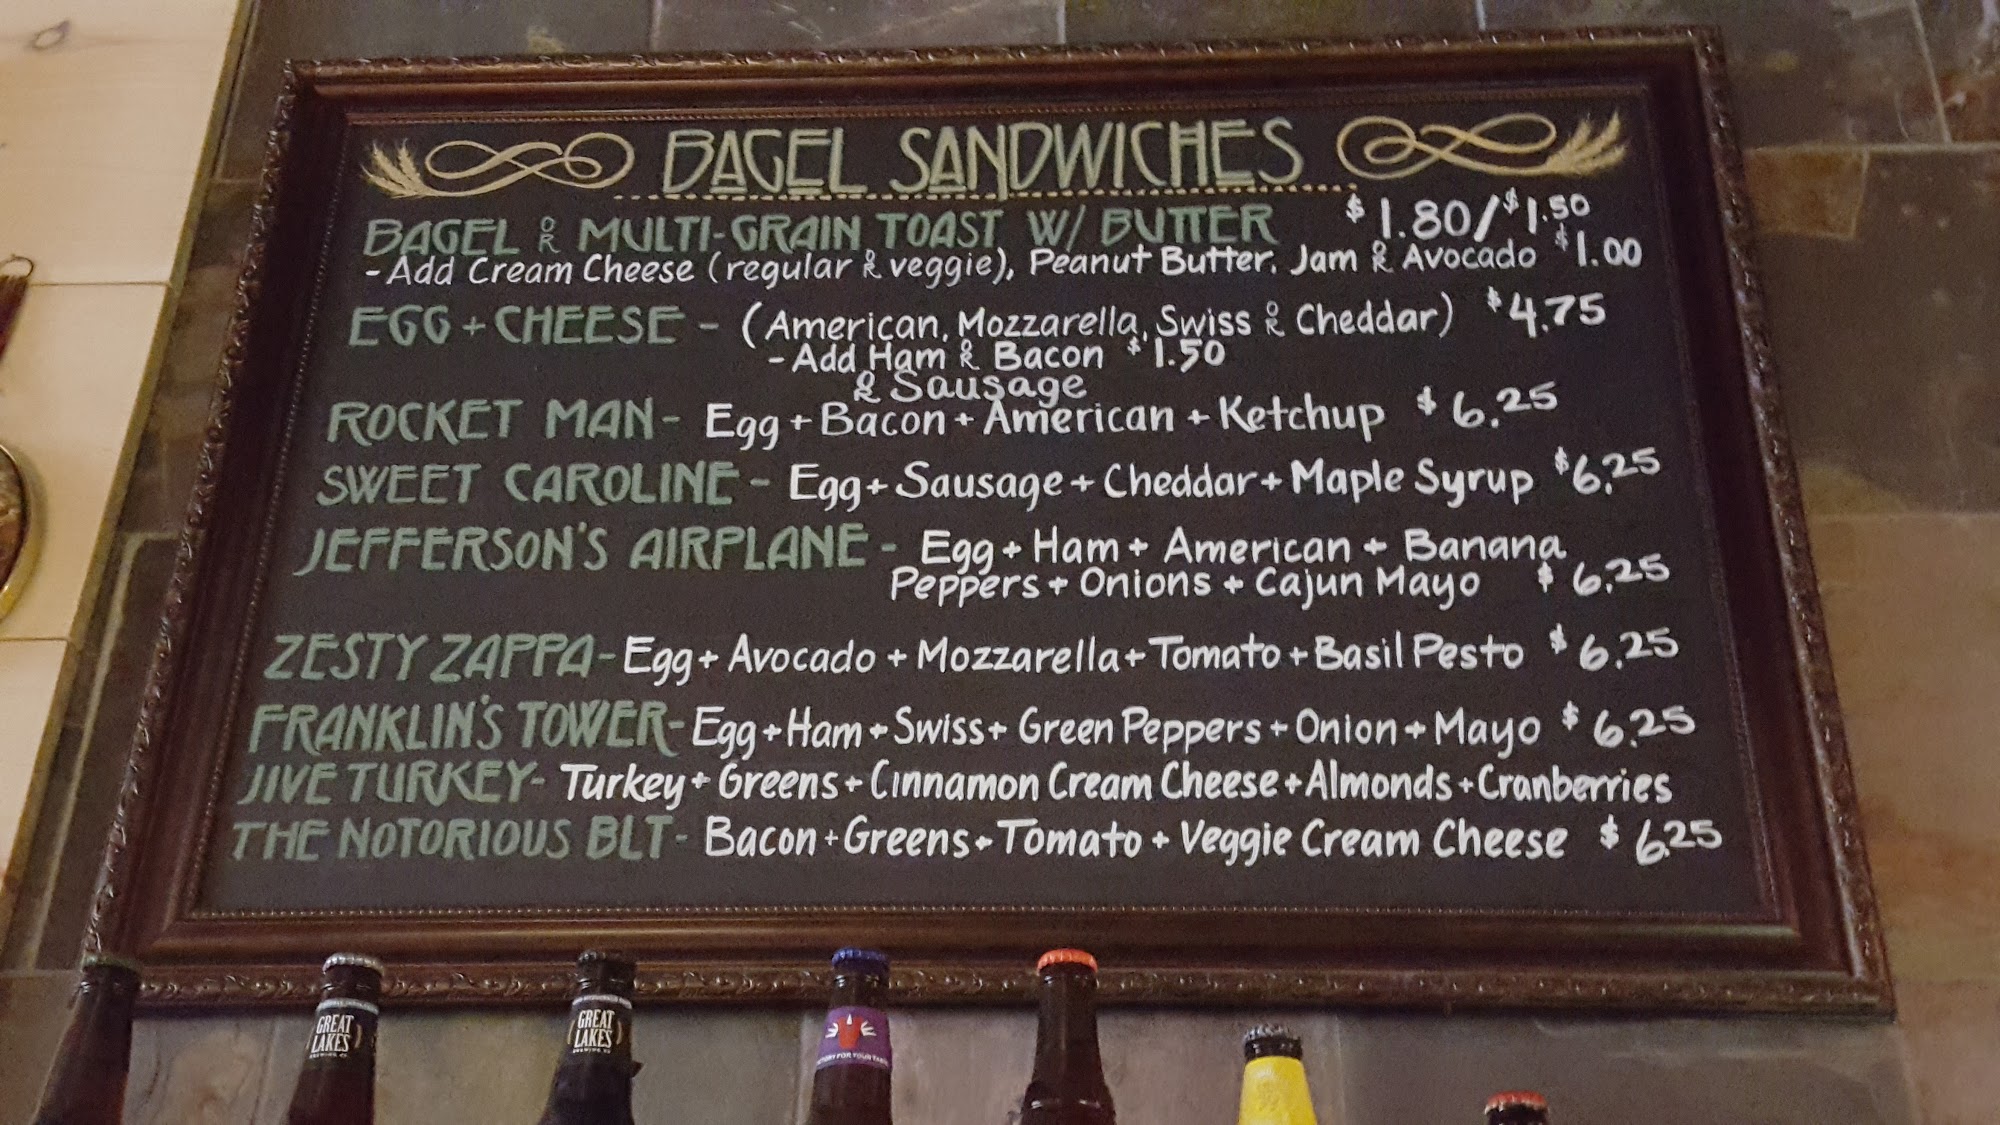 BAGEL SANDWICHES
BAGEL OR MULTI-GRAIN TOAST W/ BUTTER $1.80/$1.50
-Add Cream Cheese (regular OR veggie), Peanut Butter. Jam OR Avocado $1.00
EGG + CHEESE - (American, Mozzarella, Swiss OR Cheddar) $4.75
-Add Ham OR Bacon $1.50
OR Sausage
ROCKET MAN - Egg + Bacon + American + Ketchup $6.25
SWEET CAROLINE - Egg + Sausage + Cheddar + Maple Syrup $6.25
JEFFERSON'S AIRPLANE - Egg + Ham + American + Banana
Peppers + Onions + Cajun Mayo $6.25
ZESTY ZAPPA - Egg + Avocado + Mozzarella + Tomato + Basil Pesto $6.25
FRANKLIN'S TOWER - Egg + Ham + Swiss + Green Peppers + Onion + Mayo $6.25
JIVE TURKEY - Turkey + Greens + Cinnamon Cream Cheese + Almonds + Cranberries
THE NOTORIOUS BLT - Bacon + Greens + Tomato + Veggie Cream Cheese $6.25
GREAT
LAKES
BREWING CO.
GREAT
LAKES
BREWING CO.
FOR YOUR